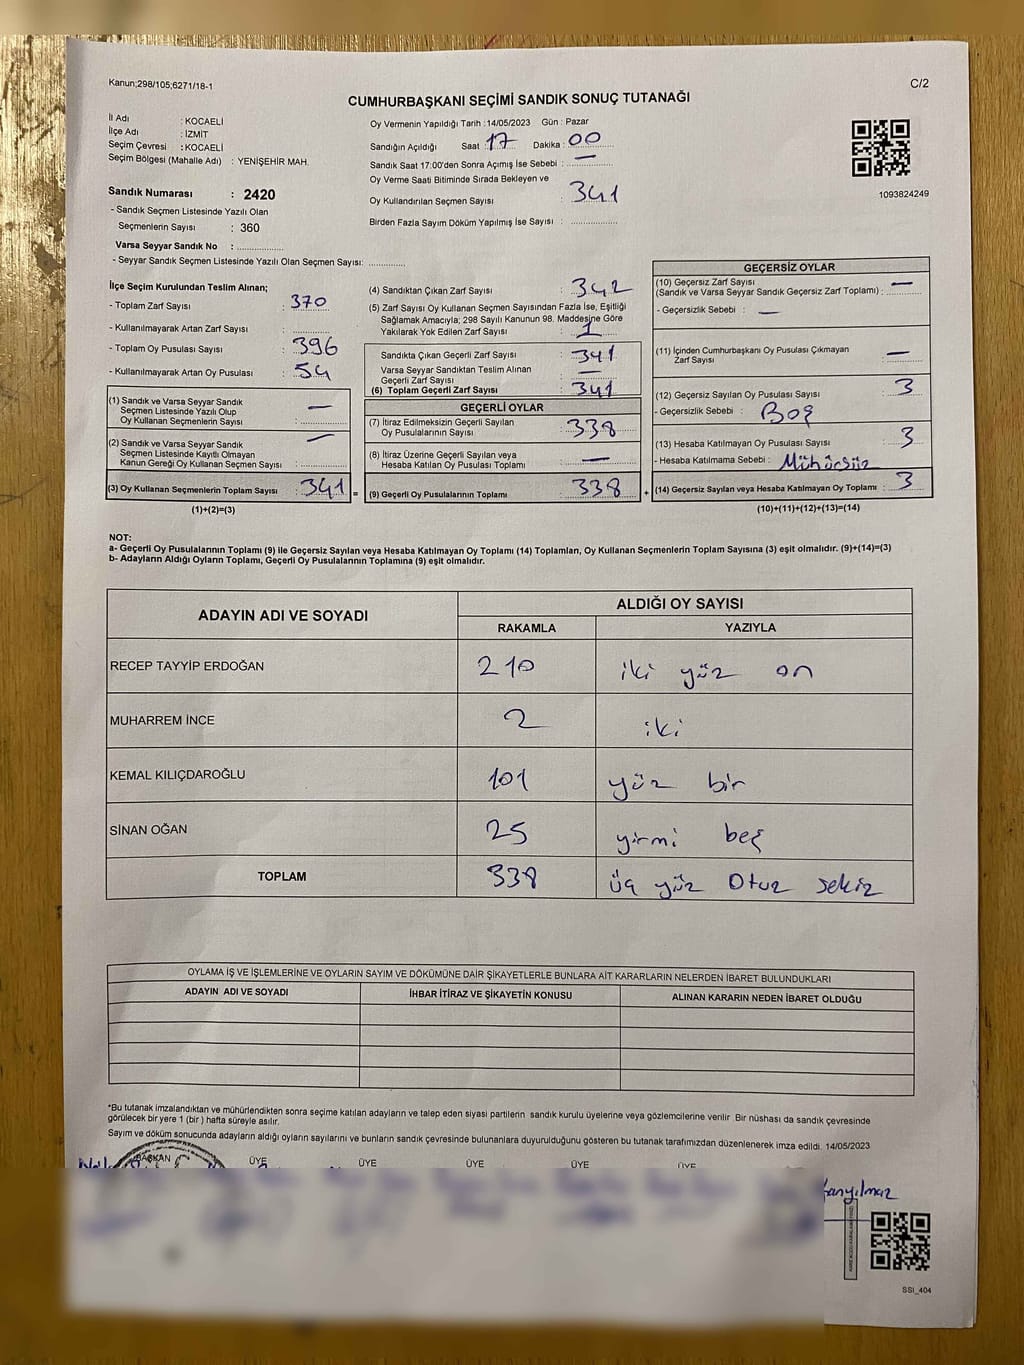 Kanun;298/105;6271/18-1
C/2
CUMHURBAŞKANI SEÇİMİ SANDIK SONUÇ TUTANAĞI
İl Adı : KOCAELİ
İlçe Adı : İZMİT
Seçim Çevresi : KOCAELİ
Seçim Bölgesi (Mahalle Adı) : YENİŞEHİR MAH.
Sandık Numarası : 2420
- Sandık Seçmen Listesinde Yazılı Olan
Seçmenlerin Sayısı : 360
Varsa Seyyar Sandık No : ..............
- Seyyar Sandık Seçmen Listesinde Yazılı Olan Seçmen Sayısı: ............
Oy Vermenin Yapıldığı Tarih :14/05/2023 Gün : Pazar
Sandığın Açıldığı Saat : 17 Dakika : 00
Sandık Saat 17:00'den Sonra Açımış İse Sebebi : —
Oy Verme Saati Bitiminde Sırada Bekleyen ve
Oy Kullandırılan Seçmen Sayısı : 341
Birden Fazla Sayım Döküm Yapılmış İse Sayısı : ..............
1093824249
İlçe Seçim Kurulundan Teslim Alınan;
- Toplam Zarf Sayısı : 370
- Kullanılmayarak Artan Zarf Sayısı : ............
- Toplam Oy Pusulası Sayısı : 396
- Kullanılmayarak Artan Oy Pusulası : 54
(1) Sandık ve Varsa Seyyar Sandık
Seçmen Listesinde Yazılı Olup
Oy Kullanan Seçmenlerin Sayısı : —
(2) Sandık ve Varsa Seyyar Sandık
Seçmen Listesinde Kayıtlı Olmayan
Kanun Gereği Oy Kullanan Seçmen Sayısı : —
(3) Oy Kullanan Seçmenlerin Toplam Sayısı : 341 =
(1)+(2)=(3)
(4) Sandıktan Çıkan Zarf Sayısı : 342
(5) Zarf Sayısı Oy Kullanan Seçmen Sayısından Fazla İse, Eşitliği
Sağlamak Amacıyla; 298 Sayılı Kanunun 98. Maddesine Göre
Yakılarak Yok Edilen Zarf Sayısı : 1
Sandıkta Çıkan Geçerli Zarf Sayısı : 341
Varsa Seyyar Sandıktan Teslim Alınan
Geçerli Zarf Sayısı : —
(6) Toplam Geçerli Zarf Sayısı : 341
GEÇERLİ OYLAR
(7) İtiraz Edilmeksizin Geçerli Sayılan
Oy Pusulalarının Sayısı : 338
(8) İtiraz Üzerine Geçerli Sayılan veya
Hesaba Katılan Oy Pusulası Toplamı : —
(9) Geçerli Oy Pusulalarının Toplamı : 338 +
GEÇERSİZ OYLAR
(10) Geçersiz Zarf Sayısı
(Sandık ve Varsa Seyyar Sandık Geçersiz Zarf Toplamı) : —
- Geçersizlik Sebebi : —
(11) İçinden Cumhurbaşkanı Oy Pusulası Çıkmayan
Zarf Sayısı : —
(12) Geçersiz Sayılan Oy Pusulası Sayısı : 3
- Geçersizlik Sebebi : Boş
(13) Hesaba Katılmayan Oy Pusulası Sayısı : 3
- Hesaba Katılmama Sebebi : Mühürsüz
(14) Geçersiz Sayılan veya Hesaba Katılmayan Oy Toplamı : 3
(10)+(11)+(12)+(13)=(14)
NOT:
a- Geçerli Oy Pusulalarının Toplamı (9) ile Geçersiz Sayılan veya Hesaba Katılmayan Oy Toplamı (14) Toplamları, Oy Kullanan Seçmenlerin Toplam Sayısına (3) eşit olmalıdır. (9)+(14)=(3)
b- Adayların Aldığı Oyların Toplamı, Geçerli Oy Pusulalarının Toplamına (9) eşit olmalıdır.
ADAYIN ADI VE SOYADI
ALDIĞI OY SAYISI
RAKAMLA YAZIYLA
RECEP TAYYİP ERDOĞAN 210 iki yüz on
MUHARREM İNCE 2 iki
KEMAL KILIÇDAROĞLU 101 yüz bir
SİNAN OĞAN 25 yirmi beş
TOPLAM 338 üç yüz Otuz sekiz
OYLAMA İŞ VE İŞLEMLERİNE VE OYLARIN SAYIM VE DÖKÜMÜNE DAİR ŞİKAYETLERLE BUNLARA AİT KARARLARIN NELERDEN İBARET BULUNDUKLARI
ADAYIN ADI VE SOYADI İHBAR İTİRAZ VE ŞİKAYETİN KONUSU ALINAN KARARIN NEDEN İBARET OLDUĞU
*Bu tutanak imzalandıktan ve mühürlendikten sonra seçime katılan adayların ve talep eden siyasi partilerin sandık kurulu üyelerine veya gözlemcilerine verilir Bir nüshası da sandık çevresinde
görülecek bir yere 1 (bir ) hafta süreyle asılır.
Sayım ve döküm sonucunda adayların aldığı oyların sayılarını ve bunların sandık çevresinde bulunanlara duyurulduğunu gösteren bu tutanak tarafımızdan düzenlenerek imza edildi. 14/05/2023
BAŞKAN ÜYE ÜYE ÜYE ÜYE ÜYE
SSI_404